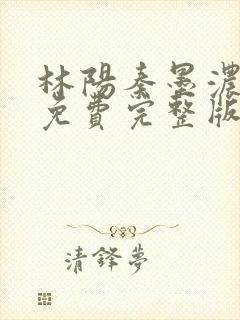 林陽秦墨濃
免費完整版
清鋒夢